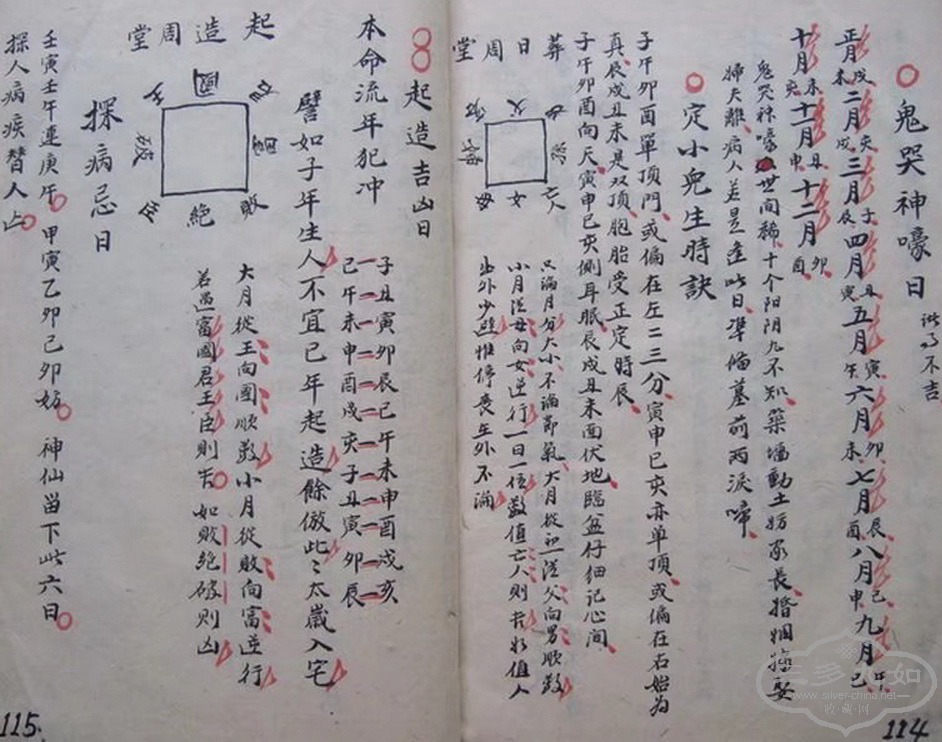 鬼哭神嚎日
正月未戌二月戌亥三月辰子四月寅丑五月午寅六月未卯七月酉辰八月申巳九月巳午
十月亥未十一月申丑十二月酉卯
鬼哭神嚎世间稀十个阳阴九不知築墙動土妨家長婚姻嫁娶
婦夫離病人若是逢此日準備墓前两淚啼
定小兒生時訣
子午卯酉單顶門或偏在左二三分寅申巳亥亦单顶或偏在右始为
真辰戌丑未是双顶胞胎受正定時辰
子午卯酉向天寅申巳亥侧耳眠辰戌丑未面伏地臨盆仔细记心间
葬日周堂
父
女
母
只論月分大小不論節氣大月從初一從父向男順数
小月從母向女逆行一日一位数值亡人則吉如值人
出外少避惟停喪在外不論
114
起造吉凶日
本命流年犯冲
子丑寅卯辰巳午未申酉戌亥
巳午未申酉戌亥子丑寅卯辰
譬如子年生人不宜巳年起造餘倣此太歲入宅
起造周堂
國
敗
絕
大月從王向國順数小月從敗向富逆行
若遇富國君王臣則吉如敗絕破則凶
探病忌日
壬寅壬午連庚午甲寅乙卯己卯妨神仙留下此六日
探人病疾替人亡
115.
www.silver-china.net
收·藏·网